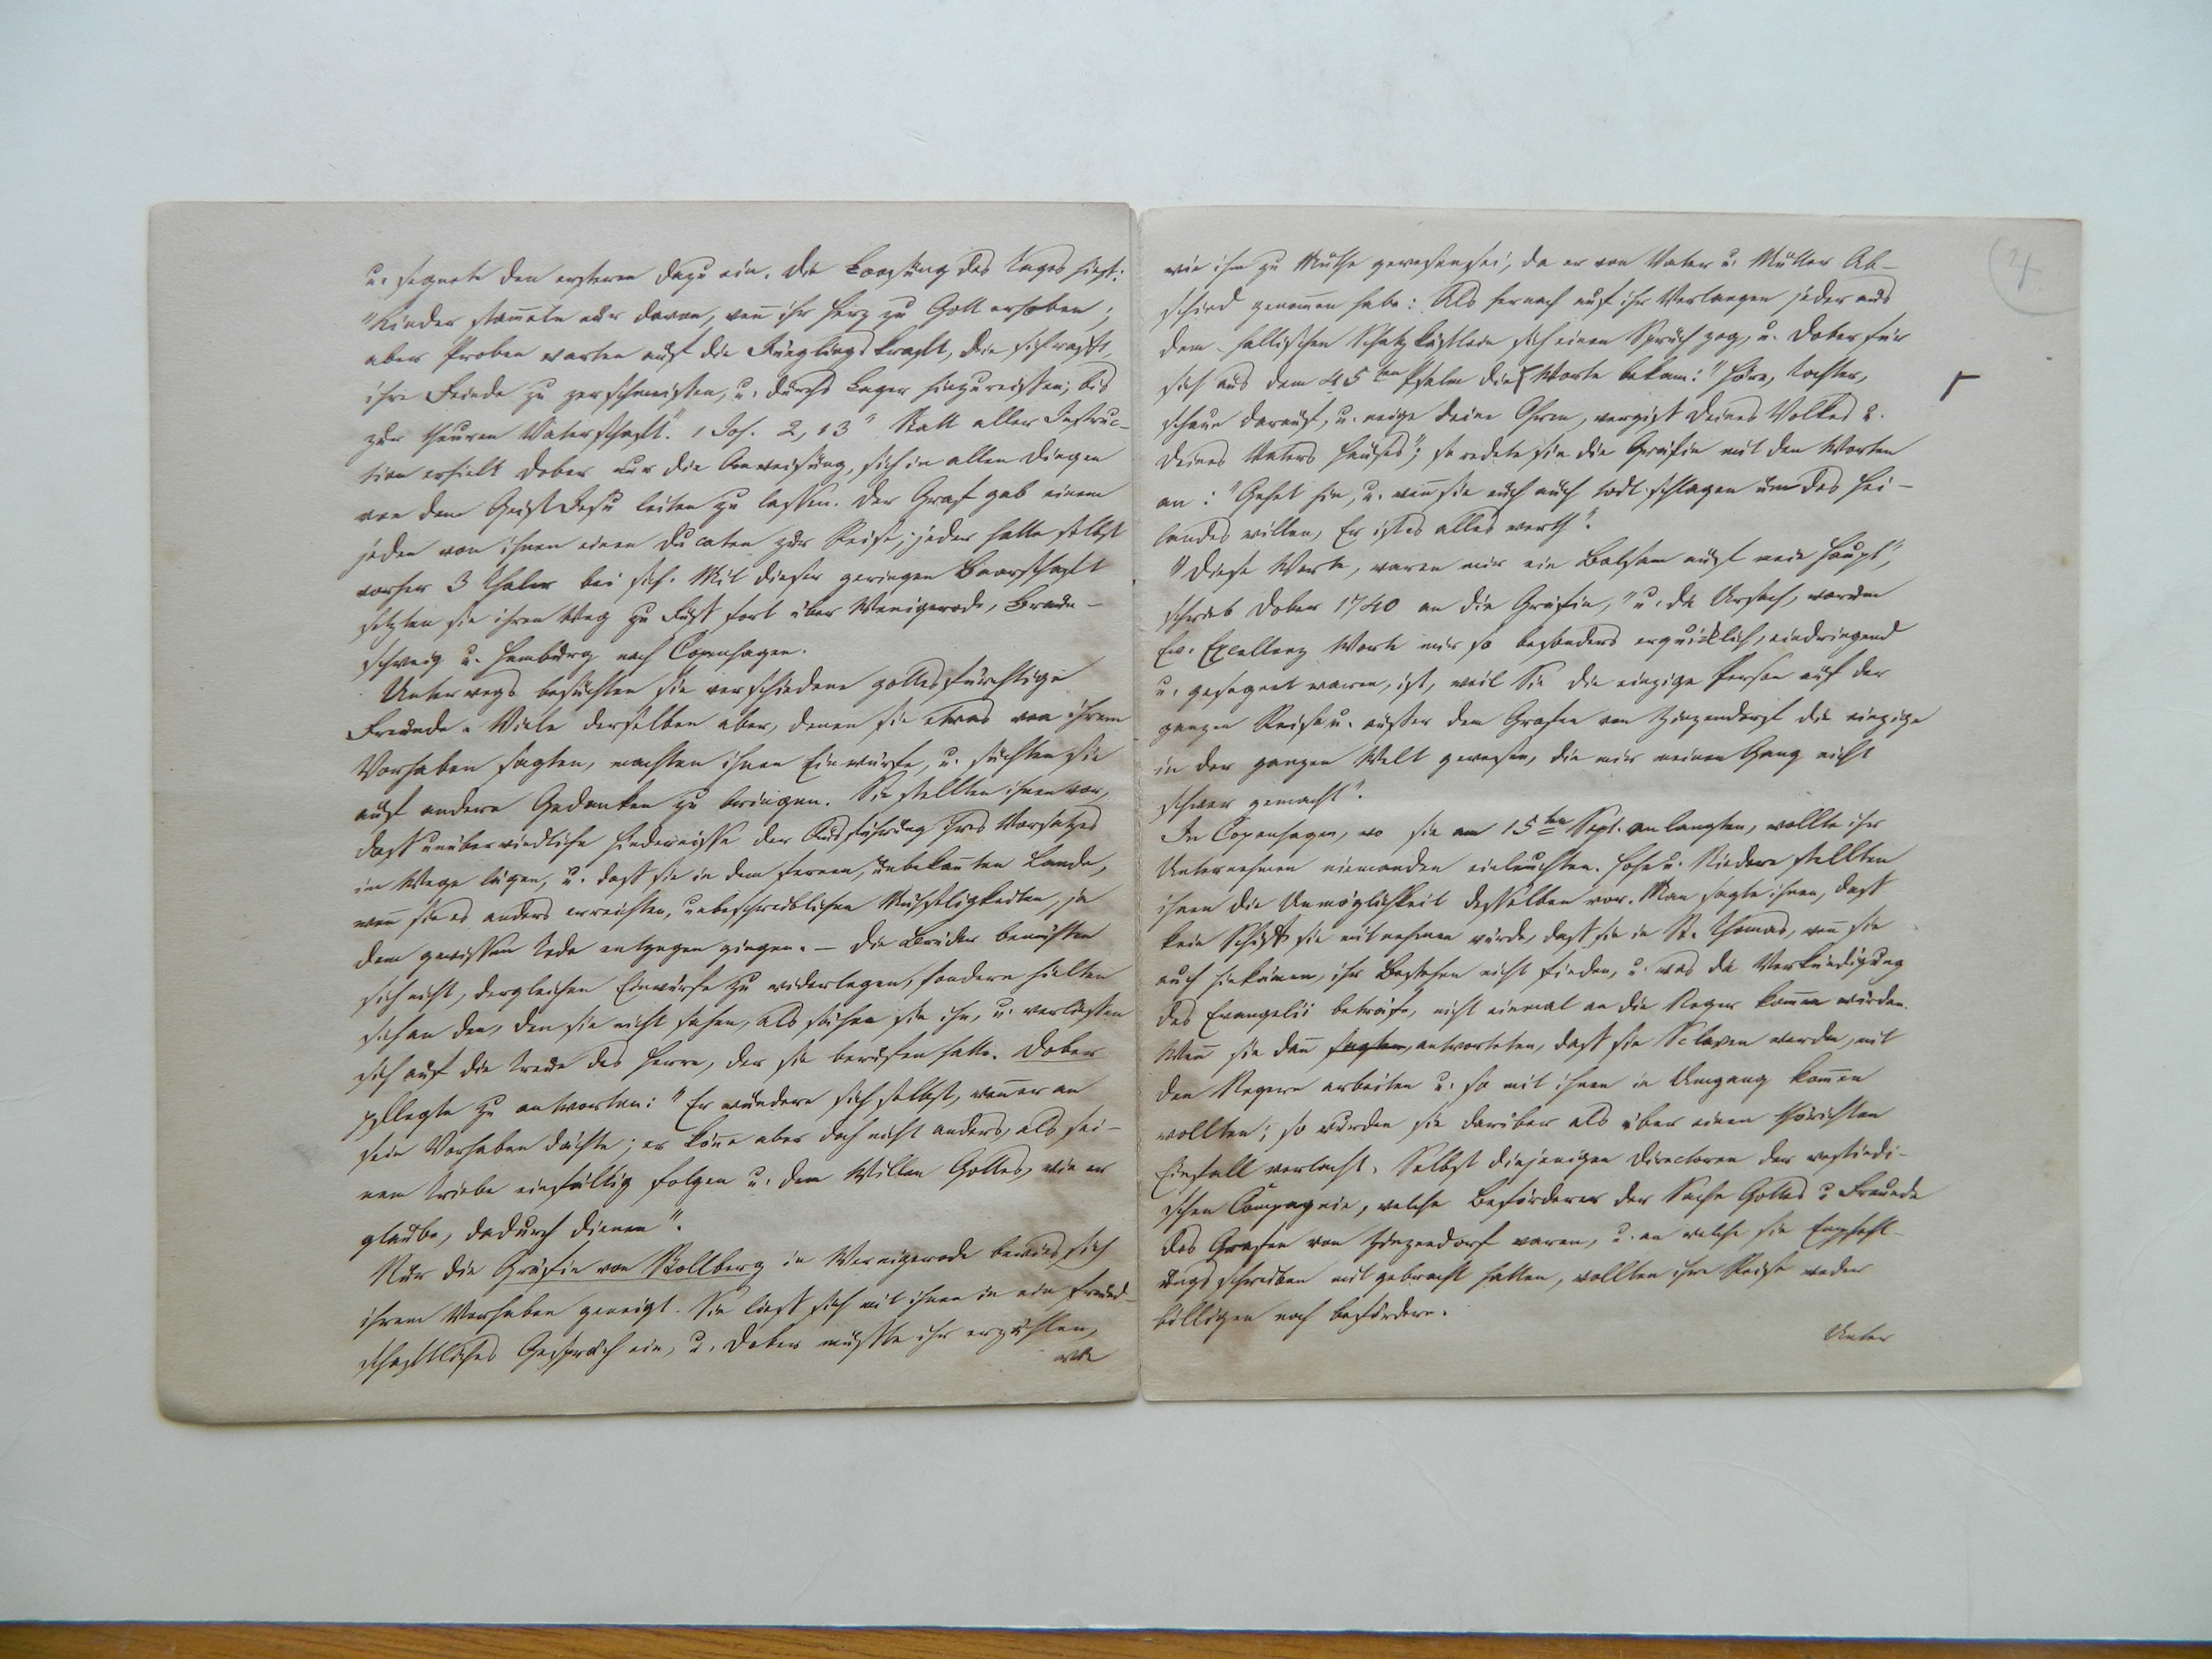 u. segnete den ersteren dazu ein. Die Loosung des Tages hieß:
"Kinder stam̅eln nur davon, wen̅ ihr Herz zu Gott erhoben;
aber Proben warten auf die Jünglingskraft, die sich rafft,
ihre Feinde zu zerschmeissen, u. durchs Lager hinzureissen, bis
zur theuren Vaterschaft." 1 Joh. 2, 13" Statt aller Instruc-
tion erhielt Dober nur die Anweisung, sich in allen Dingen
von dem Geist Jesu leiten zu lassen. Der Graf gab einem
jeden von ihnen einen Ducaten zur Reise; jeder hatte selbst
vorher 3 Thaler bei sich. Mit dieser geringen Baarschaft
setzten sie ihren Weg zu Fuß fort über Wernigerode, Braun-
schweig u. Hamburg nach Copenhagen.
Unterwegs besuchten sie verschiedene gottesfürchtige
Freunde. Viele derselben aber, denen sie etwas von ihrem
Vorhaben sagten, machten ihnen Einwürfe, u. suchten sie
auf andere Gedanken zu bringen. Sie stellten ihnen vor,
daß unüberwindliche Hindernisse der Ausführung ihres Vorsatzes
im Wege lägen, u. daß sie in dem fernen, unbekan̅ten Lande,
wen̅ sie es anders erreichten, unbeschreiblichen Mühseligkeiten, ja
dem gewissen Tode entgegen gingen. – Die Brüder bemühten
sich nicht, dergleichen Einwürfe zu widerlegen, sondern hielten
sich an den, den sie nicht sahen, als sähen sie ihn, u. verließen
sich auf die Treue des Herrn, der sie berufen hatte. Dober
pflegte zu antworten: "Er wundere sich selbst, wen̅ er an
sein Vorhaben dächte; er kön̅e aber doch nicht anders, als sei-
nem Triebe einfältig folgen u. dem Willen Gottes, wie er
glaube, dadurch dienen".
Nur die Gräfin von Stollberg in Wernigerode bewies sich
ihrem Vorhaben geneigt. Sie ließ sich mit ihnen in ein freund-
schaftliches Gespräch ein, u. Dober mußte ihr erzählen,
wie
wie ihm zu Muthe gewesen sei, da er von Vater u. Mutter Ab-
schied genom̅en habe: Als hernach auf ihr Verlangen jeder aus
dem hallischen Schatzkästlein sich einen Spruch zog, u. Dober für
sich aus dem 45ten Psalm die Worte bekam: "Höre, Tochter,
schaue darauf, u. neige deine Ohren, vergiß deines Volkes u.
deines Vaters Hauses"; so redete sie die Gräfin mit den Worten
an: "Gehet hin, u. wen̅ sie euch auch todt schlagen um des Hei-
landes willen, Er ist es alles werth".
"Diese Worte, waren mir ein Balsam auf mein Haupt,"
schrieb Dober 1740 an die Gräfin, "u. die Ursach, warum
Ew. Excellenz Worte mir so besonders erquicklich, eindringend
u. gesegnet waren, ist, weil Sie die einzige Person auf der
ganzen Reise u. außer dem Grafen von Zinzendorf die einzige
in der ganzen Welt gewesen, die mir meinen Gang nicht
schwer gemacht".
In Copenhagen, wo sie am 15ten Sept. anlangten, wollte ihr
Unternehmen niemanden einleuchten. Hohe u. Niedere stellten
ihnen die Unmöglichkeit desselben vor. Man sagte ihnen, daß
kein Schiff sie mitnehmen würde, daß sie in St. Thomas, wen̅ sie
auch hinkämen, ihr Bestehen nicht finden, u. was die Verkündigung
des Evangelii beträfe, nicht einmal an die Neger kom̅en würden.
Wen̅ sie dan̅ sagten, antworteten, daß sie Sclaven werden, mit
den Negern arbeiten u. so mit ihnen in Umgang kom̅en
wollten; so wurden sie darüber als über einen thörichten
Einfall verlacht. Selbst diejenigen Directoren der westindi-
schen Compagnie, welche Beförderer der Sache Gottes u Freunde
des Grafen von Zinzendorf waren, u. an welche sie Empfehl-
ungsschreiben mitgebracht hatten, wollten ihre Reise weder
billigen noch befördern.
Unter